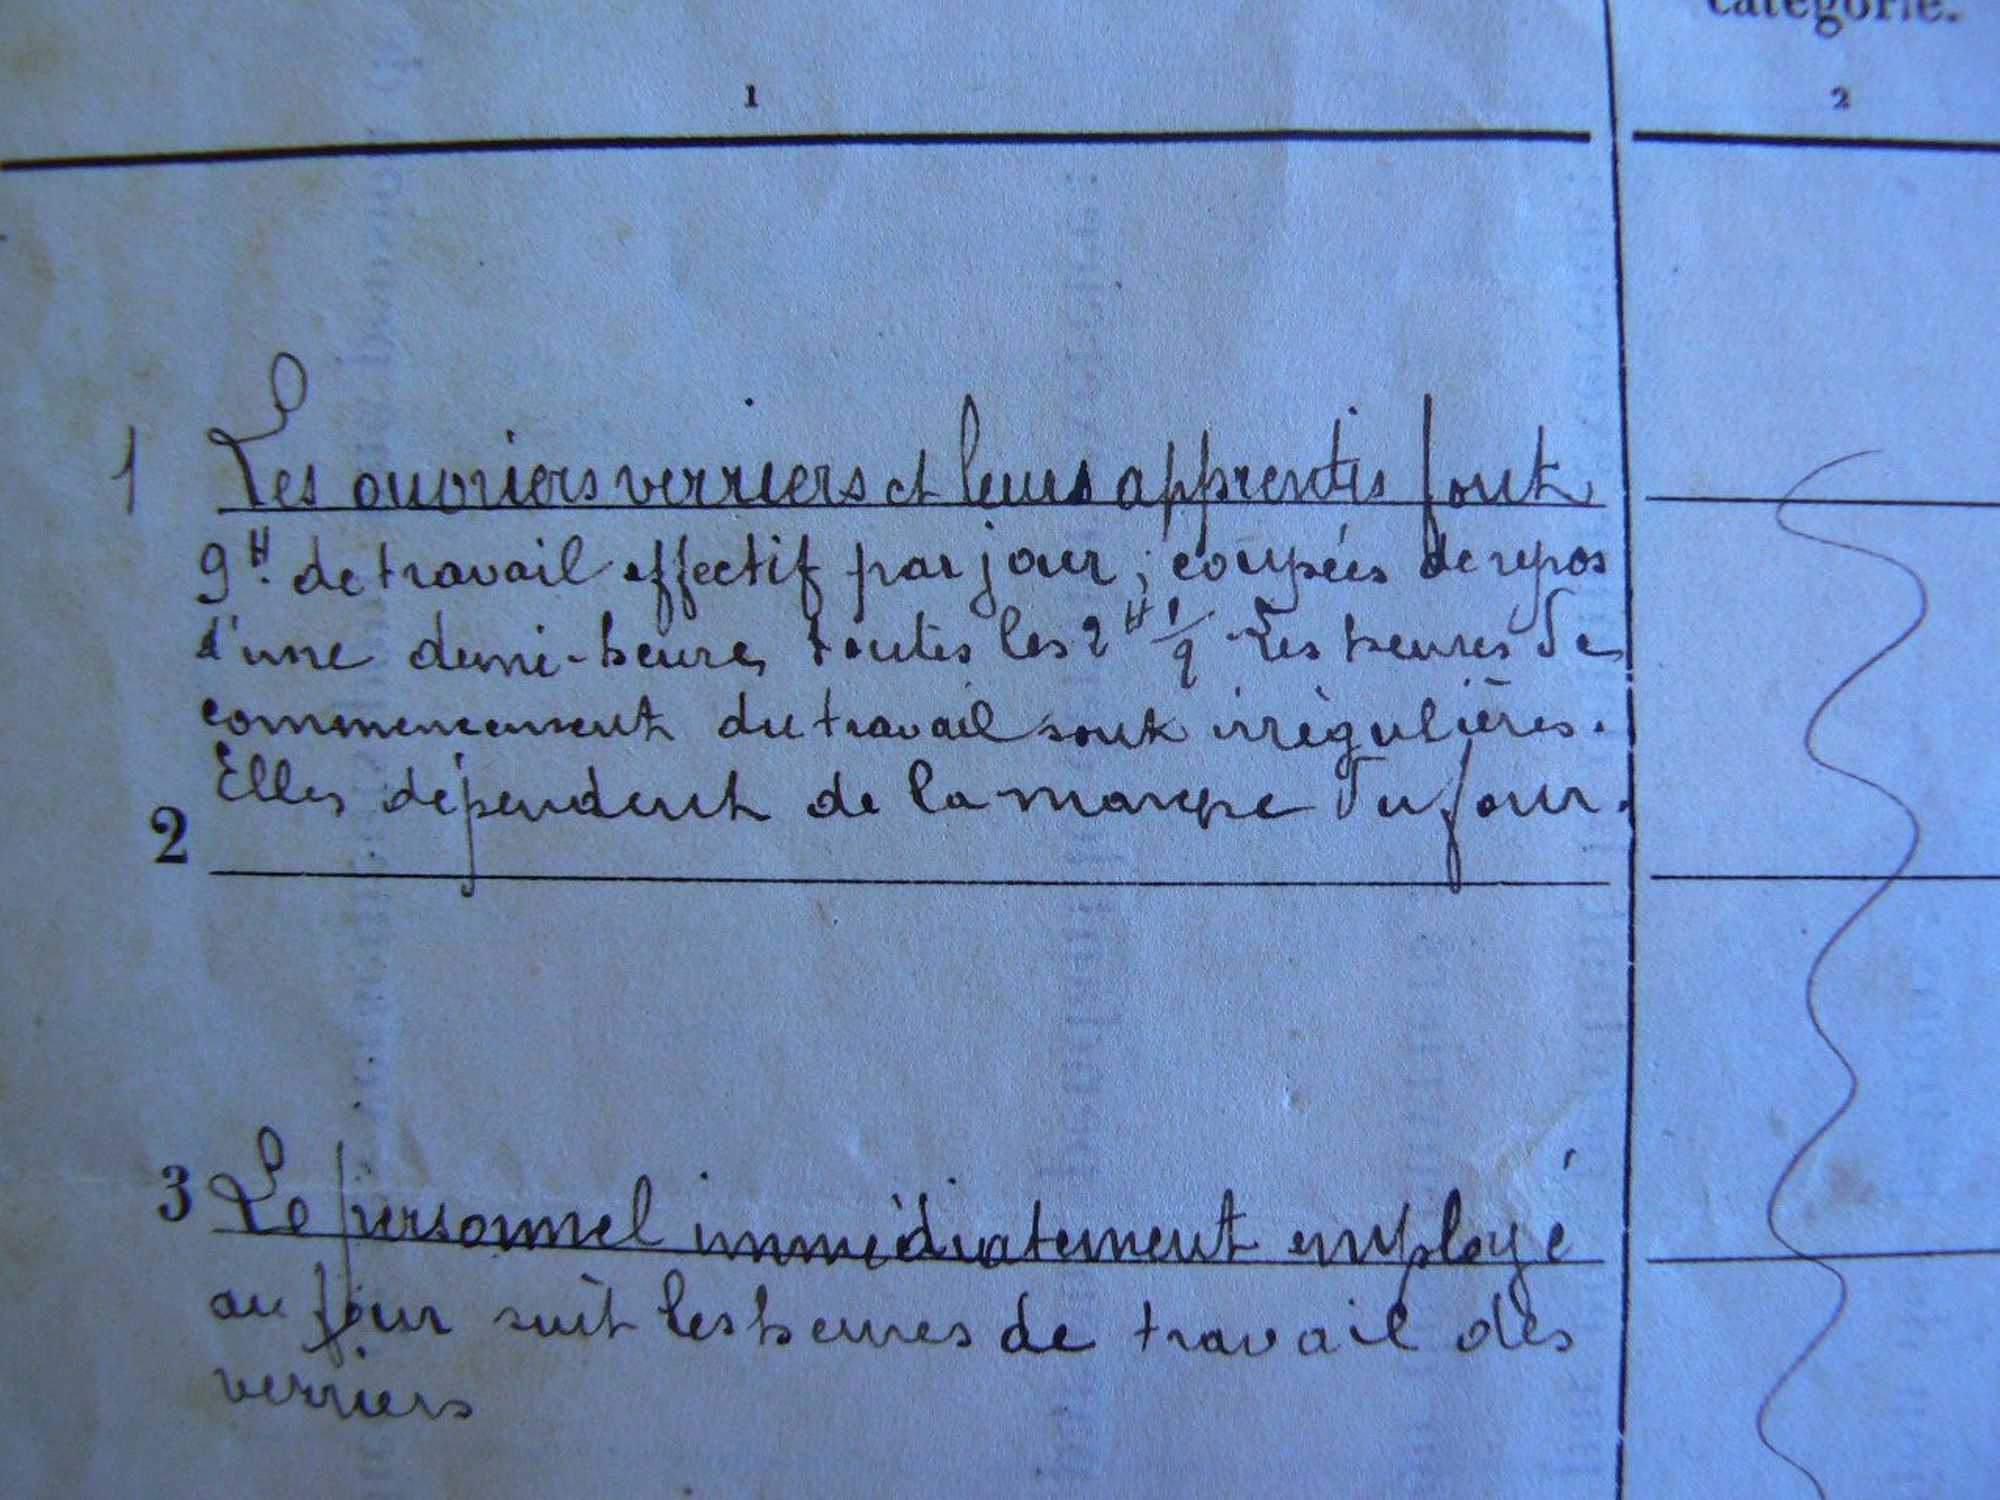 catégorie.
1 2
1 Les ouvriers verriers et leurs apprentis font
9H. de travail effectif par jour, coupées de repos
d'une demi-heure, toutes les 2H 1/2. Les heures de
commencement du travail sont irrégulières.
Elles dépendent de la marche du four.
2
3 Le personnel immédiatement employé
au four suit les heures de travail des
verriers